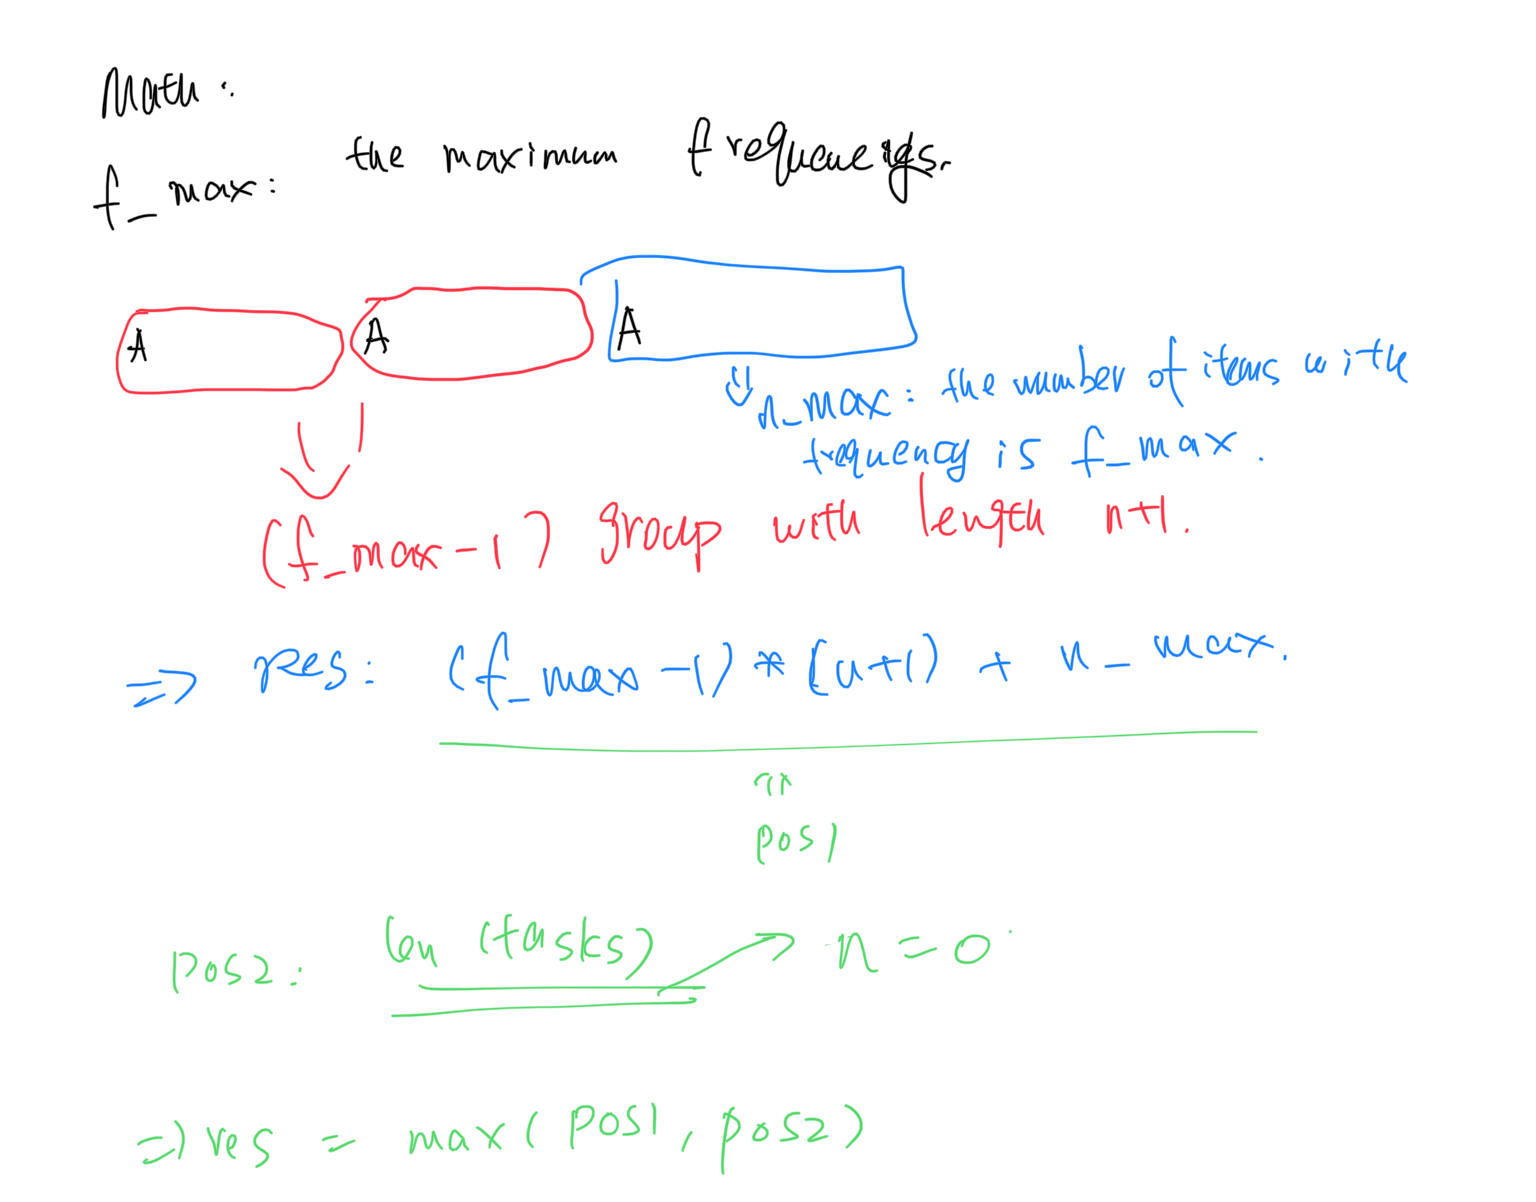 Math:
f_max: the maximum frequencies.
A A A
n_max: the number of items with
frequency is f_max.
(f_max-1) group with length n+1.
=> res: (f_max-1) * (n+1) + n_max.
pos1
pos2: len (tasks) → n = 0
=> res = max( pos1, pos2 )